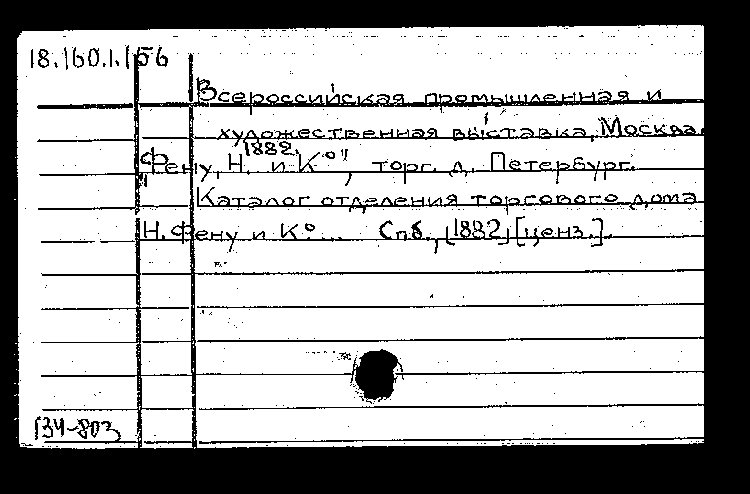 18.160.1.156
Всероссийская промышленная и
художественная выставка, Москва,
1882.
"Фену, Н. и К°", торг. д. Петербург.
Каталог отделения торгового дома
Н. Фену и К° ... Спб., [1882] [ценз.].
134-803